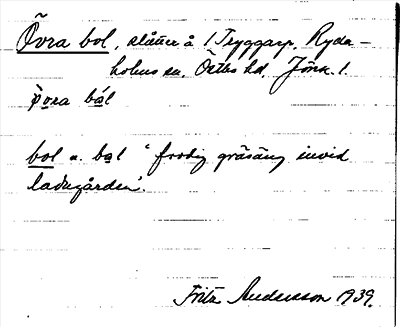 Övra bol, slåtter å 1 Tryggarp, Ryda-
holms sn, Östbo hd, Jönk. l.
övra bål
bol n. bal "frodig gräsäng invid
ladugården".
Fritz Andersson 1939.